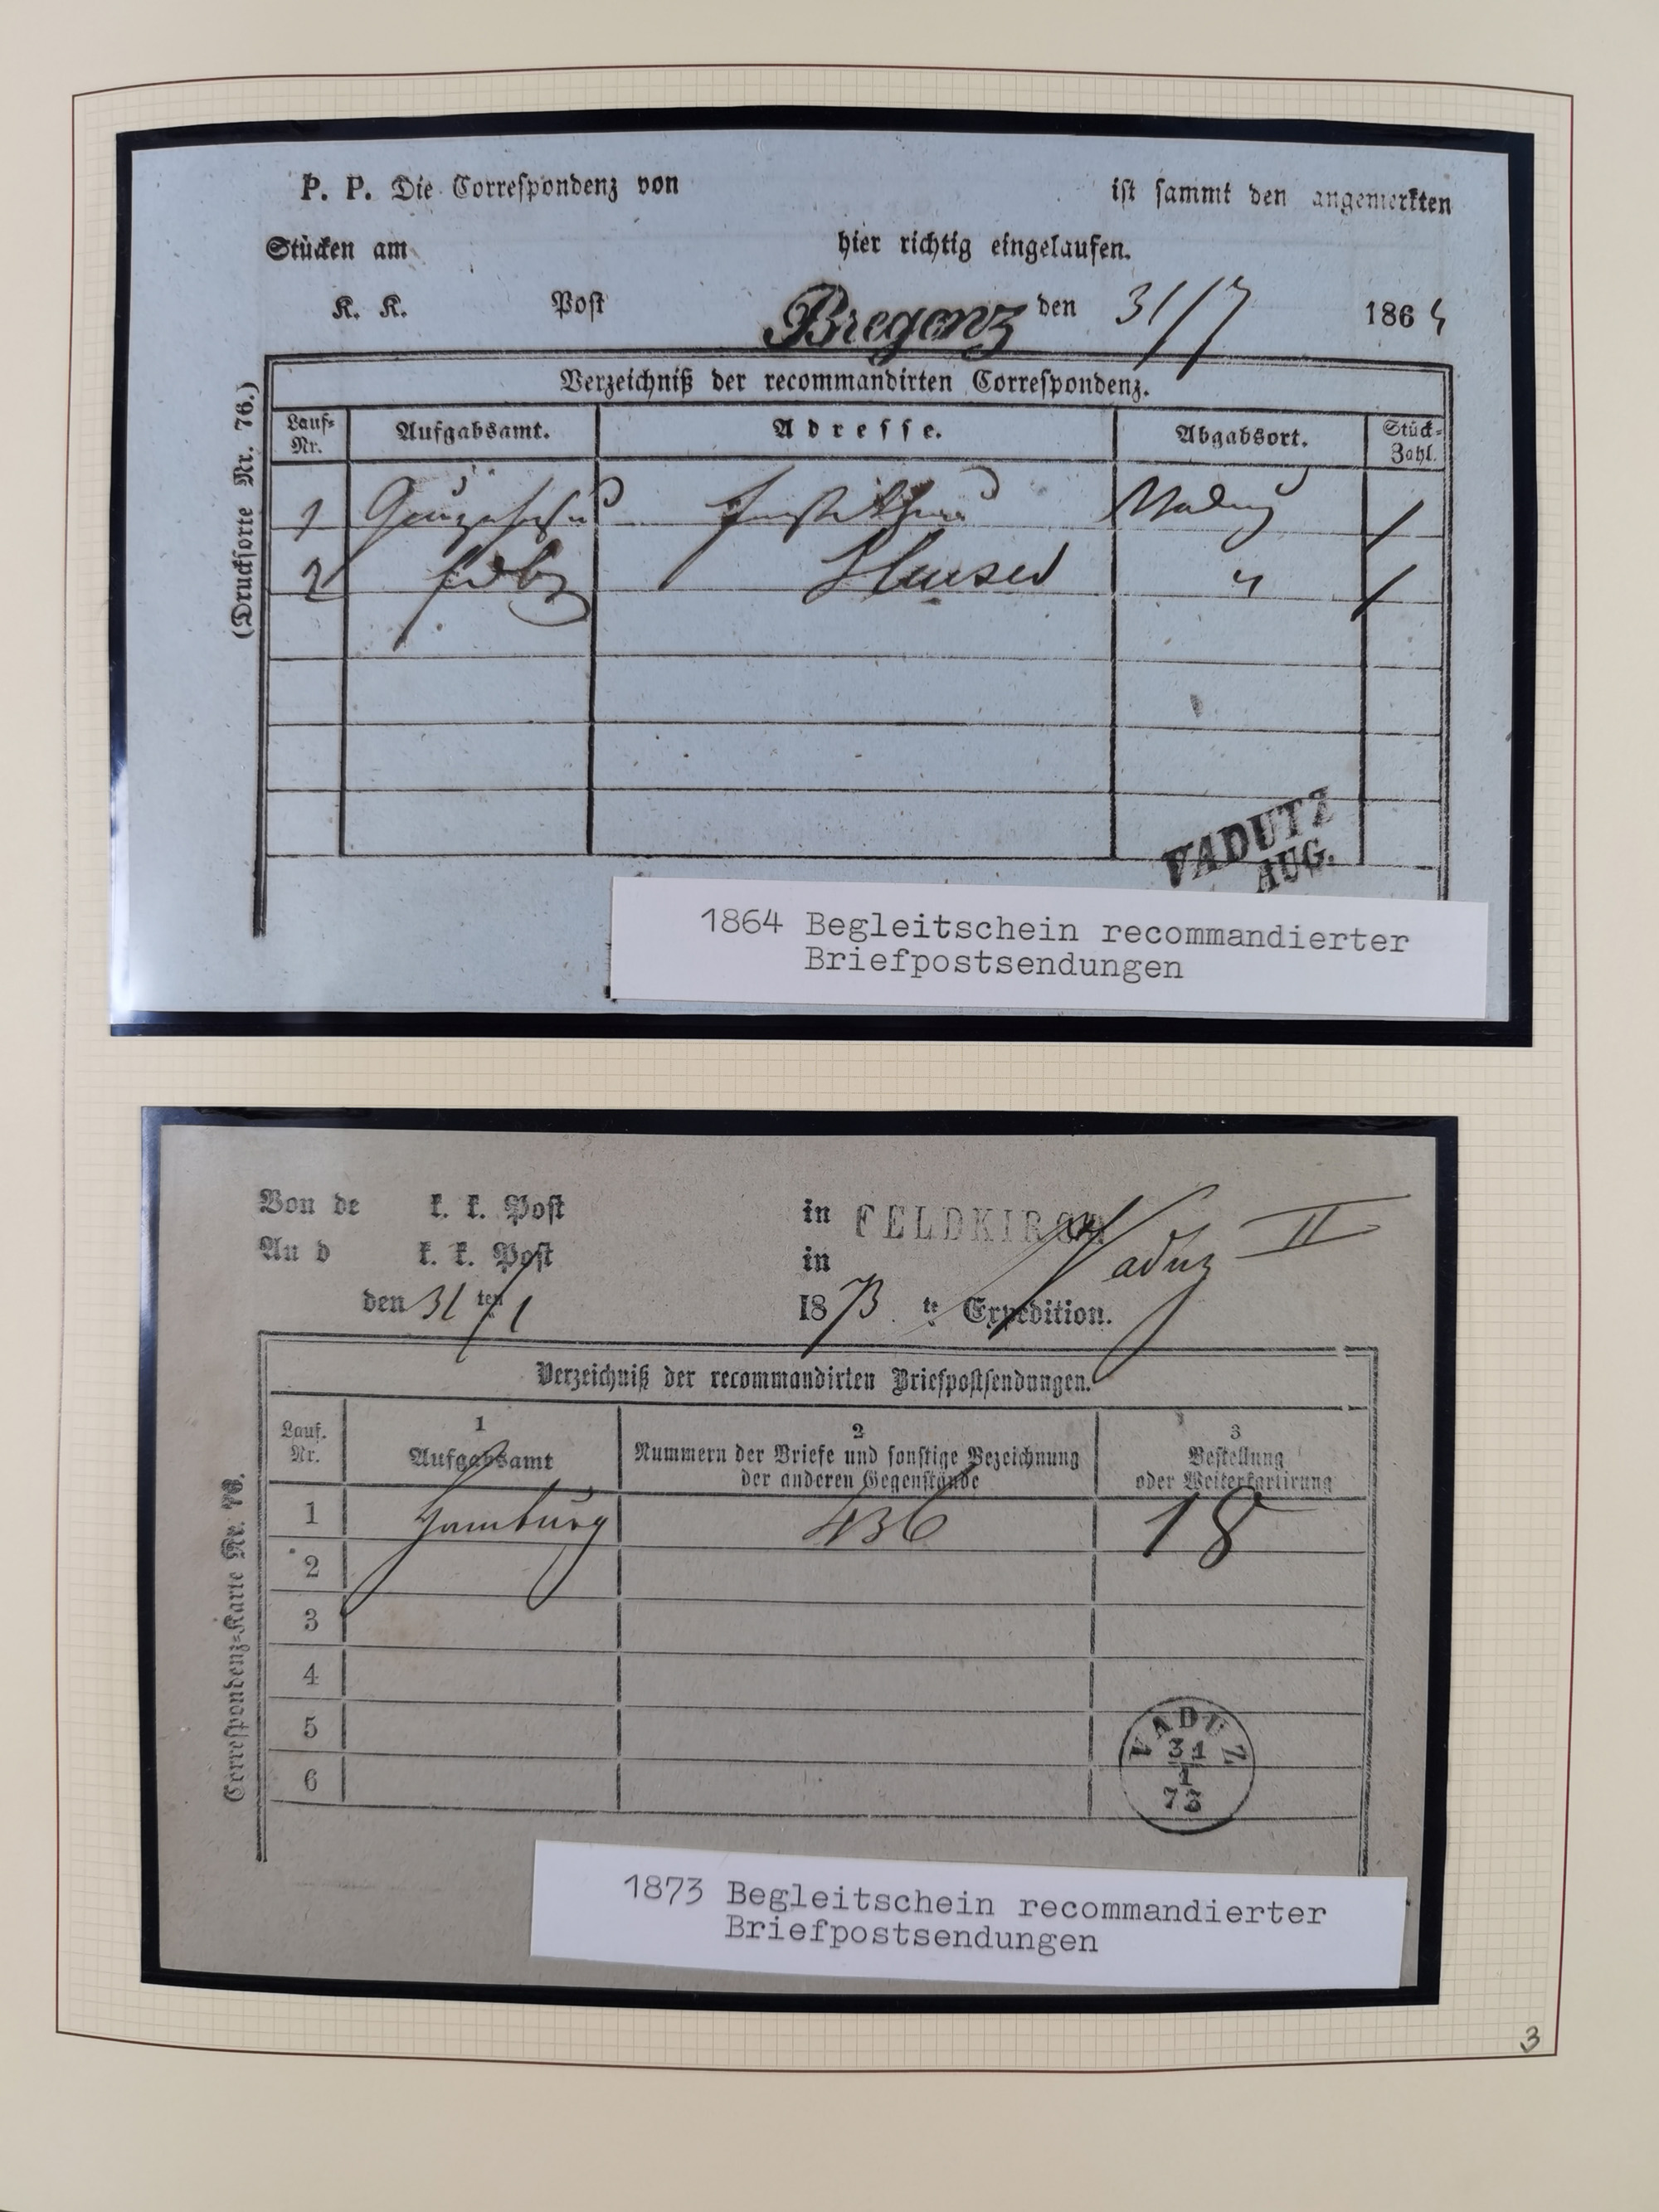 P. P. Die Correspondenz von ist sammt den angemerkten
Stücken am hier richtig eingelaufen.
K. K. Post Bregenz den 31/7 1864
(Drucksorte Nr. 76.)
Verzeichniß der recommandirten Correspondenz.
Lauf-Nr. Aufgabsamt. Adresse. Abgabsort. Stück-Zahl.
1 Vaduz 1
2 " 1
VADUTZ
AUG.
1864 Begleitschein recommandierter
Briefpostsendungen
Von de k. k. Post in FELDKIRCH
An d k. k. Post in Vaduz II
den 31 ten/1 1873 te Expedition.
Correspondenz-Karte Nr. 76.
Verzeichniß der recommandirten Briefpostsendungen.
Lauf. Nr. 1 Aufgabsamt 2 Nummern der Briefe und sonstige Bezeichnung der anderen Gegenstände 3 Bestellung oder Weiterkartirung
1 Hamburg 436 18
2
3
4
5
6
VADUZ
31
1
73
1873 Begleitschein recommandierter
Briefpostsendungen
3